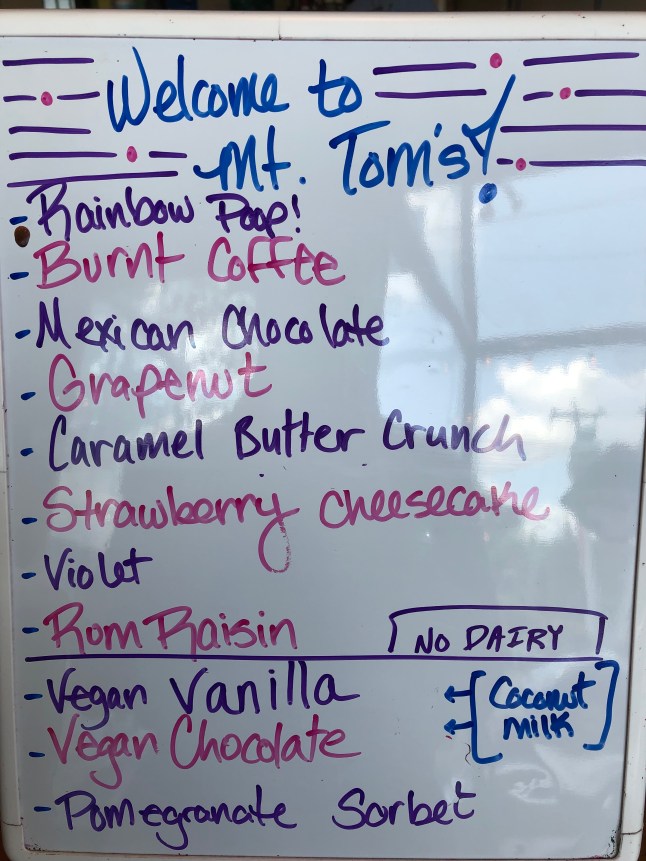 Welcome to
Mt. Tom's!
- Rainbow Poop!
- Burnt Coffee
- Mexican Chocolate
- Grapenut
- Caramel Butter Crunch
- Strawberry Cheesecake
- Violet
- Rom Raisin
NO DAIRY
- Vegan Vanilla
- Vegan Chocolate
Coconut
milk
- Pomegranate Sorbet